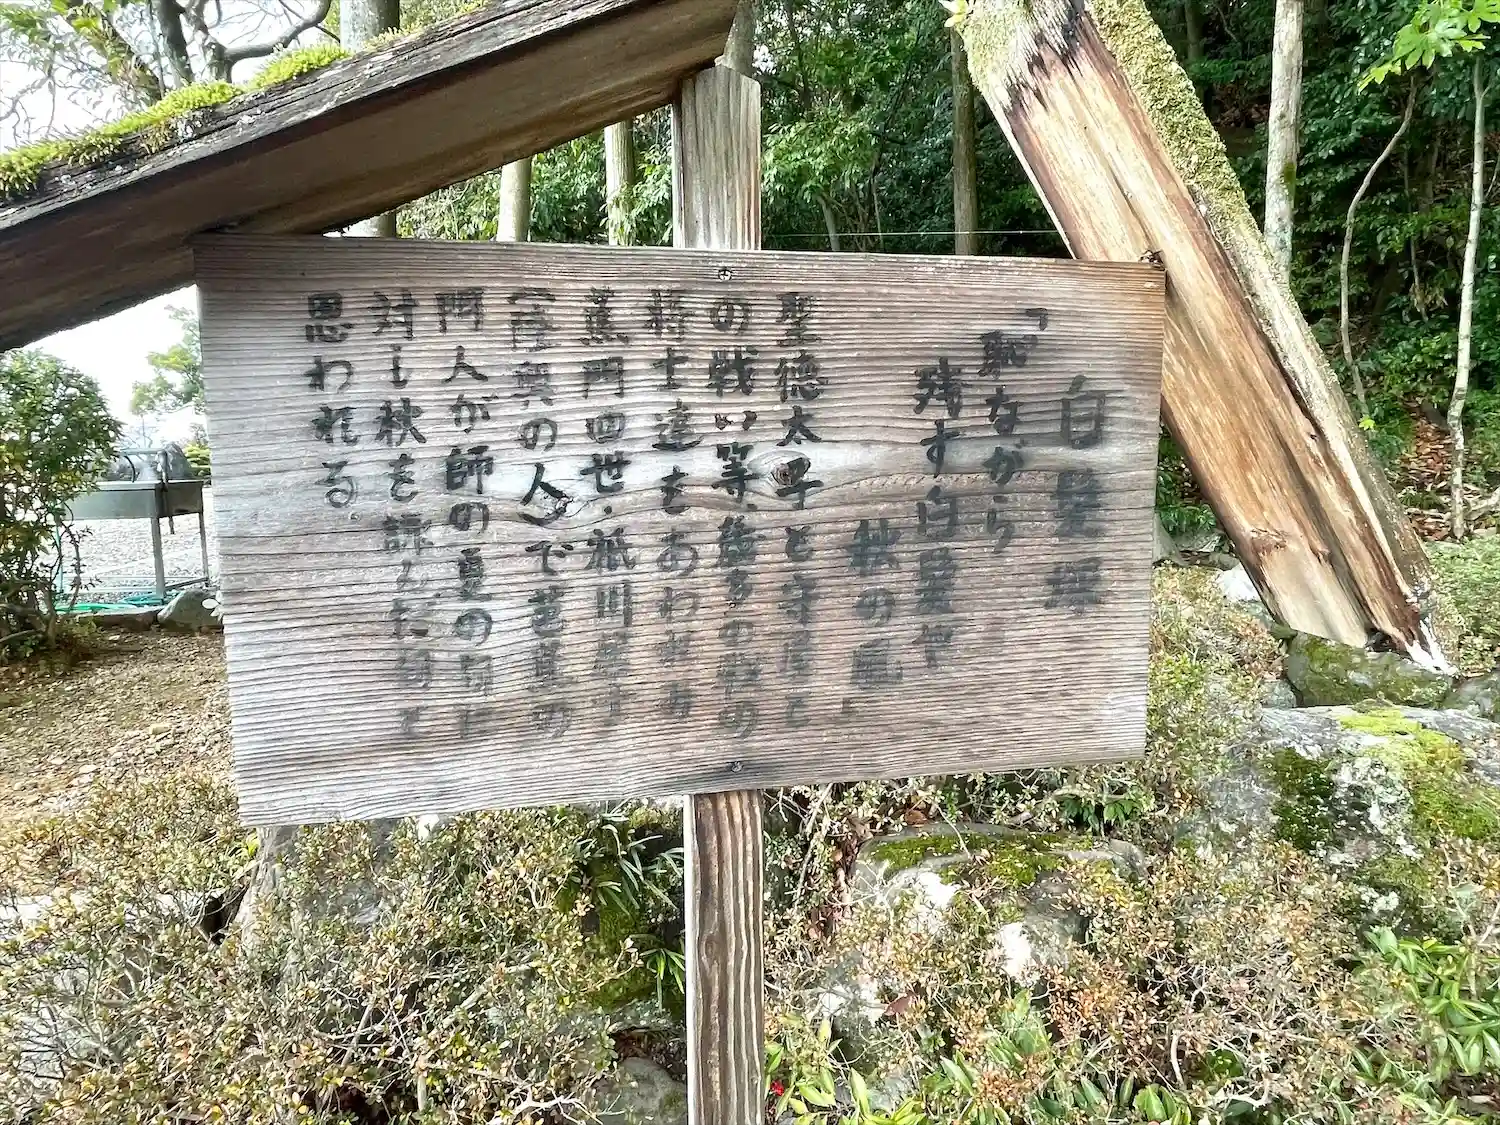 白髪塚
「恥ながら
残す白髪や
秋の風」
聖徳太子と守屋と
の戦い等、幾多の戦の
将士達をあわれみ
蕉門四世・祇川居士
(陸奥の人)で芭蕉の
門人が師の夏の句に
対し秋を詠んだ句と
思われる。